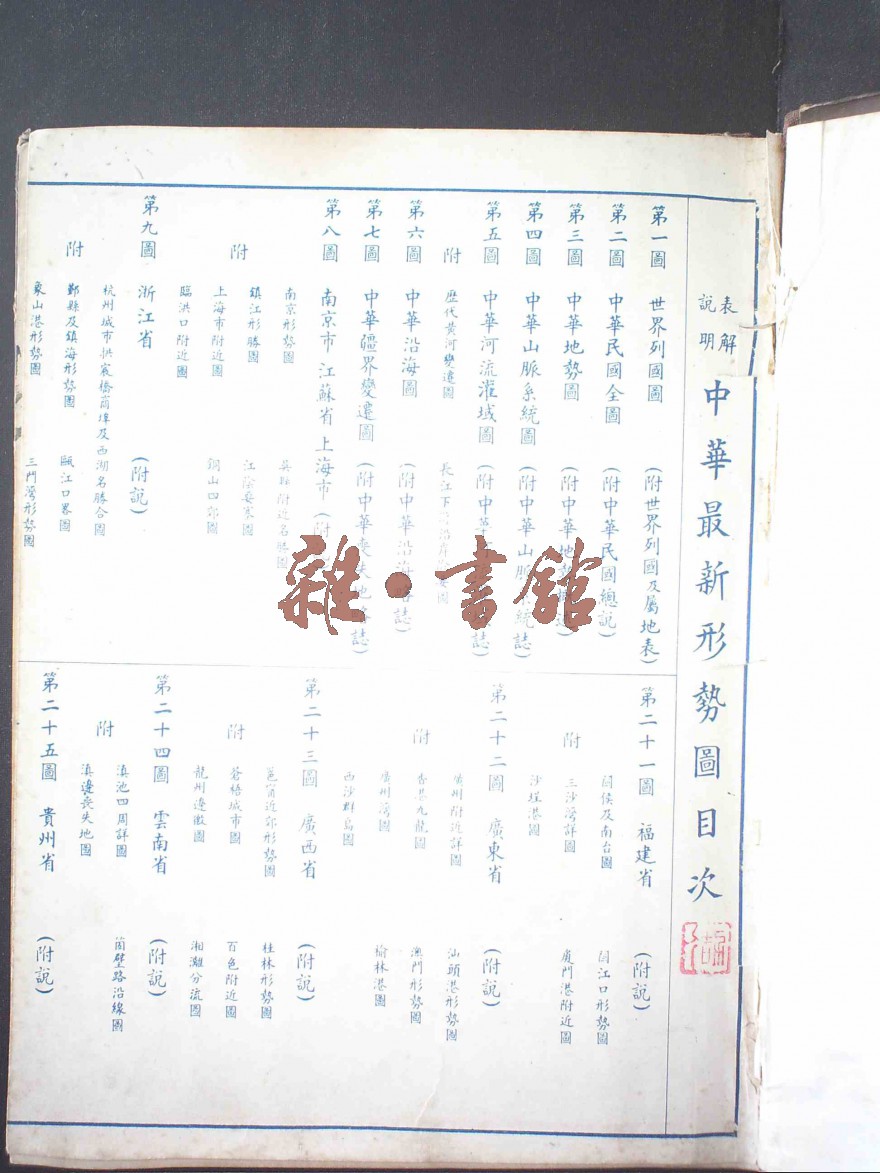 表解
說明
中華最新形勢圖目次
第一圖 世界列國圖 (附世界列國及屬地表)
第二圖 中華民國全圖 (附中華民國總說)
第三圖 中華地勢圖 (附中華地
第四圖 中華山脈系統圖 (附中華山脈系統誌)
第五圖 中華河流灌域圖 (附中華 誌)
附 歷代黃河變遷圖 長江下
第六圖 中華沿海圖 (附中華沿海 誌)
第七圖 中華疆界變遷圖 (附中華喪失地 誌)
第八圖 南京市 江蘇省 上海市 (附
南京形勢圖 吳縣附近名勝圖
鎮江形勝圖 江陰要塞圖
附
上海市附近圖 銅山四郊圖
臨洪口附近圖
第九圖 浙江省 (附說)
杭州城市拱宸橋商埠及西湖名勝合圖
附
鄞縣及鎮海形勢圖 甌江口畧圖
象山港形勢圖 三門灣形勢圖
第二十一圖 福建省 (附說)
閩侯及南台圖 閩江口形勢圖
附
三沙灣詳圖 廈門港附近圖
沙埕港圖
第二十二圖 廣東省 (附說)
廣州附近詳圖 汕頭港形勢圖
附
香港九龍圖 澳門形勢圖
廣州灣圖 榆林港圖
西沙群島圖
第二十三圖 廣西省 (附說)
邕甯近郊形勢圖 桂林形勢圖
附
蒼梧城市圖 百色附近圖
龍州邊徼圖 湘灕分流圖
第二十四圖 雲南省 (附說)
滇池四周詳圖 箇碧路沿線圖
附
滇邊喪失地圖
第二十五圖 貴州省 (附說)
雜·書館